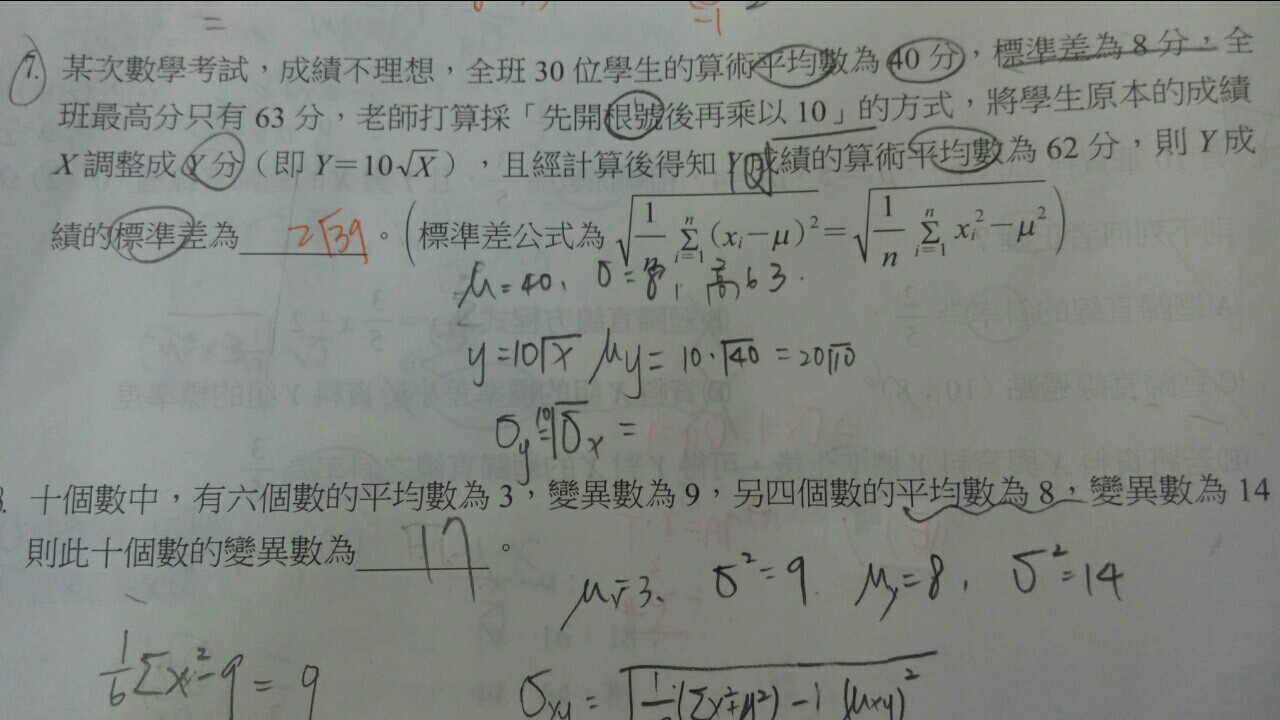 7. 某次數學考試，成績不理想，全班 30 位學生的算術平均數為 40 分，標準差為 8 分，全
班最高分只有 63 分，老師打算採「先開根號後再乘以 10」的方式，將學生原本的成績
X 調整成 Y 分（即 Y=10√X），且經計算後得知 Y 成績的算術平均數為 62 分，則 Y 成
績的標準差為 2√39 。（標準差公式為 √(1/n Σ_{i=1}^{n} (x_i−μ)²) = √(1/n Σ_{i=1}^{n} x_i²−μ²)）
μ=40、σ=8，高63.
y=10√x μy= 10·√40 = 20√10
σy=10√σx =
8. 十個數中，有六個數的平均數為 3，變異數為 9，另四個數的平均數為 8，變異數為 14
則此十個數的變異數為 17 。
μx=3、 σ²=9 μy=8, σ²=14
1/6 Σx²−9 = 9